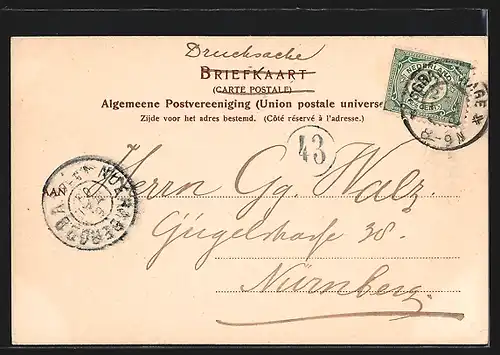 Drucksache
BRIEFKAART
(CARTE POSTALE)
Algemeene Postvereeniging (Union postale universe
Zijde voor het adres bestemd. (Côté réservé à l'adresse.)
NEDERLAND
43
AAN
Herrn Gg. Walz.
Gugelstrasse 38.
Nürnberg.
8-9N